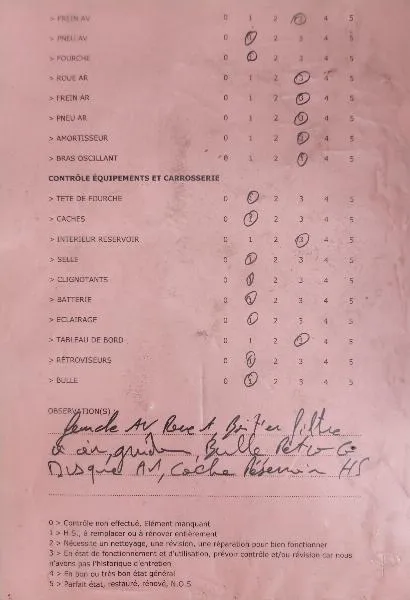 > FREIN AV 0 1 2 3 4 5
> PNEU AV 0 1 2 3 4 5
> FOURCHE 0 1 2 3 4 5
> ROUE AR 0 1 2 3 4 5
> FREIN AR 0 1 2 3 4 5
> PNEU AR 0 1 2 3 4 5
> AMORTISSEUR 0 1 2 3 4 5
> BRAS OSCILLANT 0 1 2 3 4 5
CONTRÔLE ÉQUIPEMENTS ET CARROSSERIE
> TETE DE FOURCHE 0 1 2 3 4 5
> CACHES 0 1 2 3 4 5
> INTERIEUR RESERVOIR 0 1 2 3 4 5
> SELLE 0 1 2 3 4 5
> CLIGNOTANTS 0 1 2 3 4 5
> BATTERIE 0 1 2 3 4 5
> ECLAIRAGE 0 1 2 3 4 5
> TABLEAU DE BORD 0 1 2 3 4 5
> RÉTROVISEURS 0 1 2 3 4 5
> BULLE 0 1 2 3 4 5
OBSERVATION(S)
AV Boitier filtre
a air, guidon, Bulle Retro
Disque AV, Cache Réservoir HS
0 > Contrôle non effectué, Elément manquant
1 > H.S., à remplacer ou à rénover entièrement
2 > Nécessite un nettoyage, une révision, une réparation pour bien fonctionner
3 > En état de fonctionnement et d'utilisation, prévoir contrôle et/ou révision car nous
n'avons pas l'historique d'entretien
4 > En bon ou très bon état général
5 > Parfait état, restauré, rénové, N.O.S